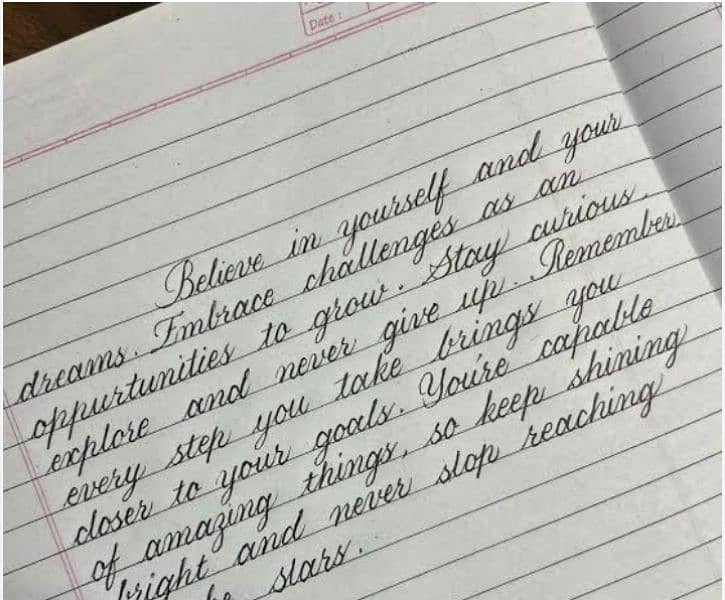 Date :
Believe in yourself and your
dreams. Embrace challenges as an
oppurtunities to grow. Stay curious,
explore and never give up. Remember
every step you take brings you
closer to your goals. You're capable
of amazing things, so keep shining
bright and never stop reaching
stars.